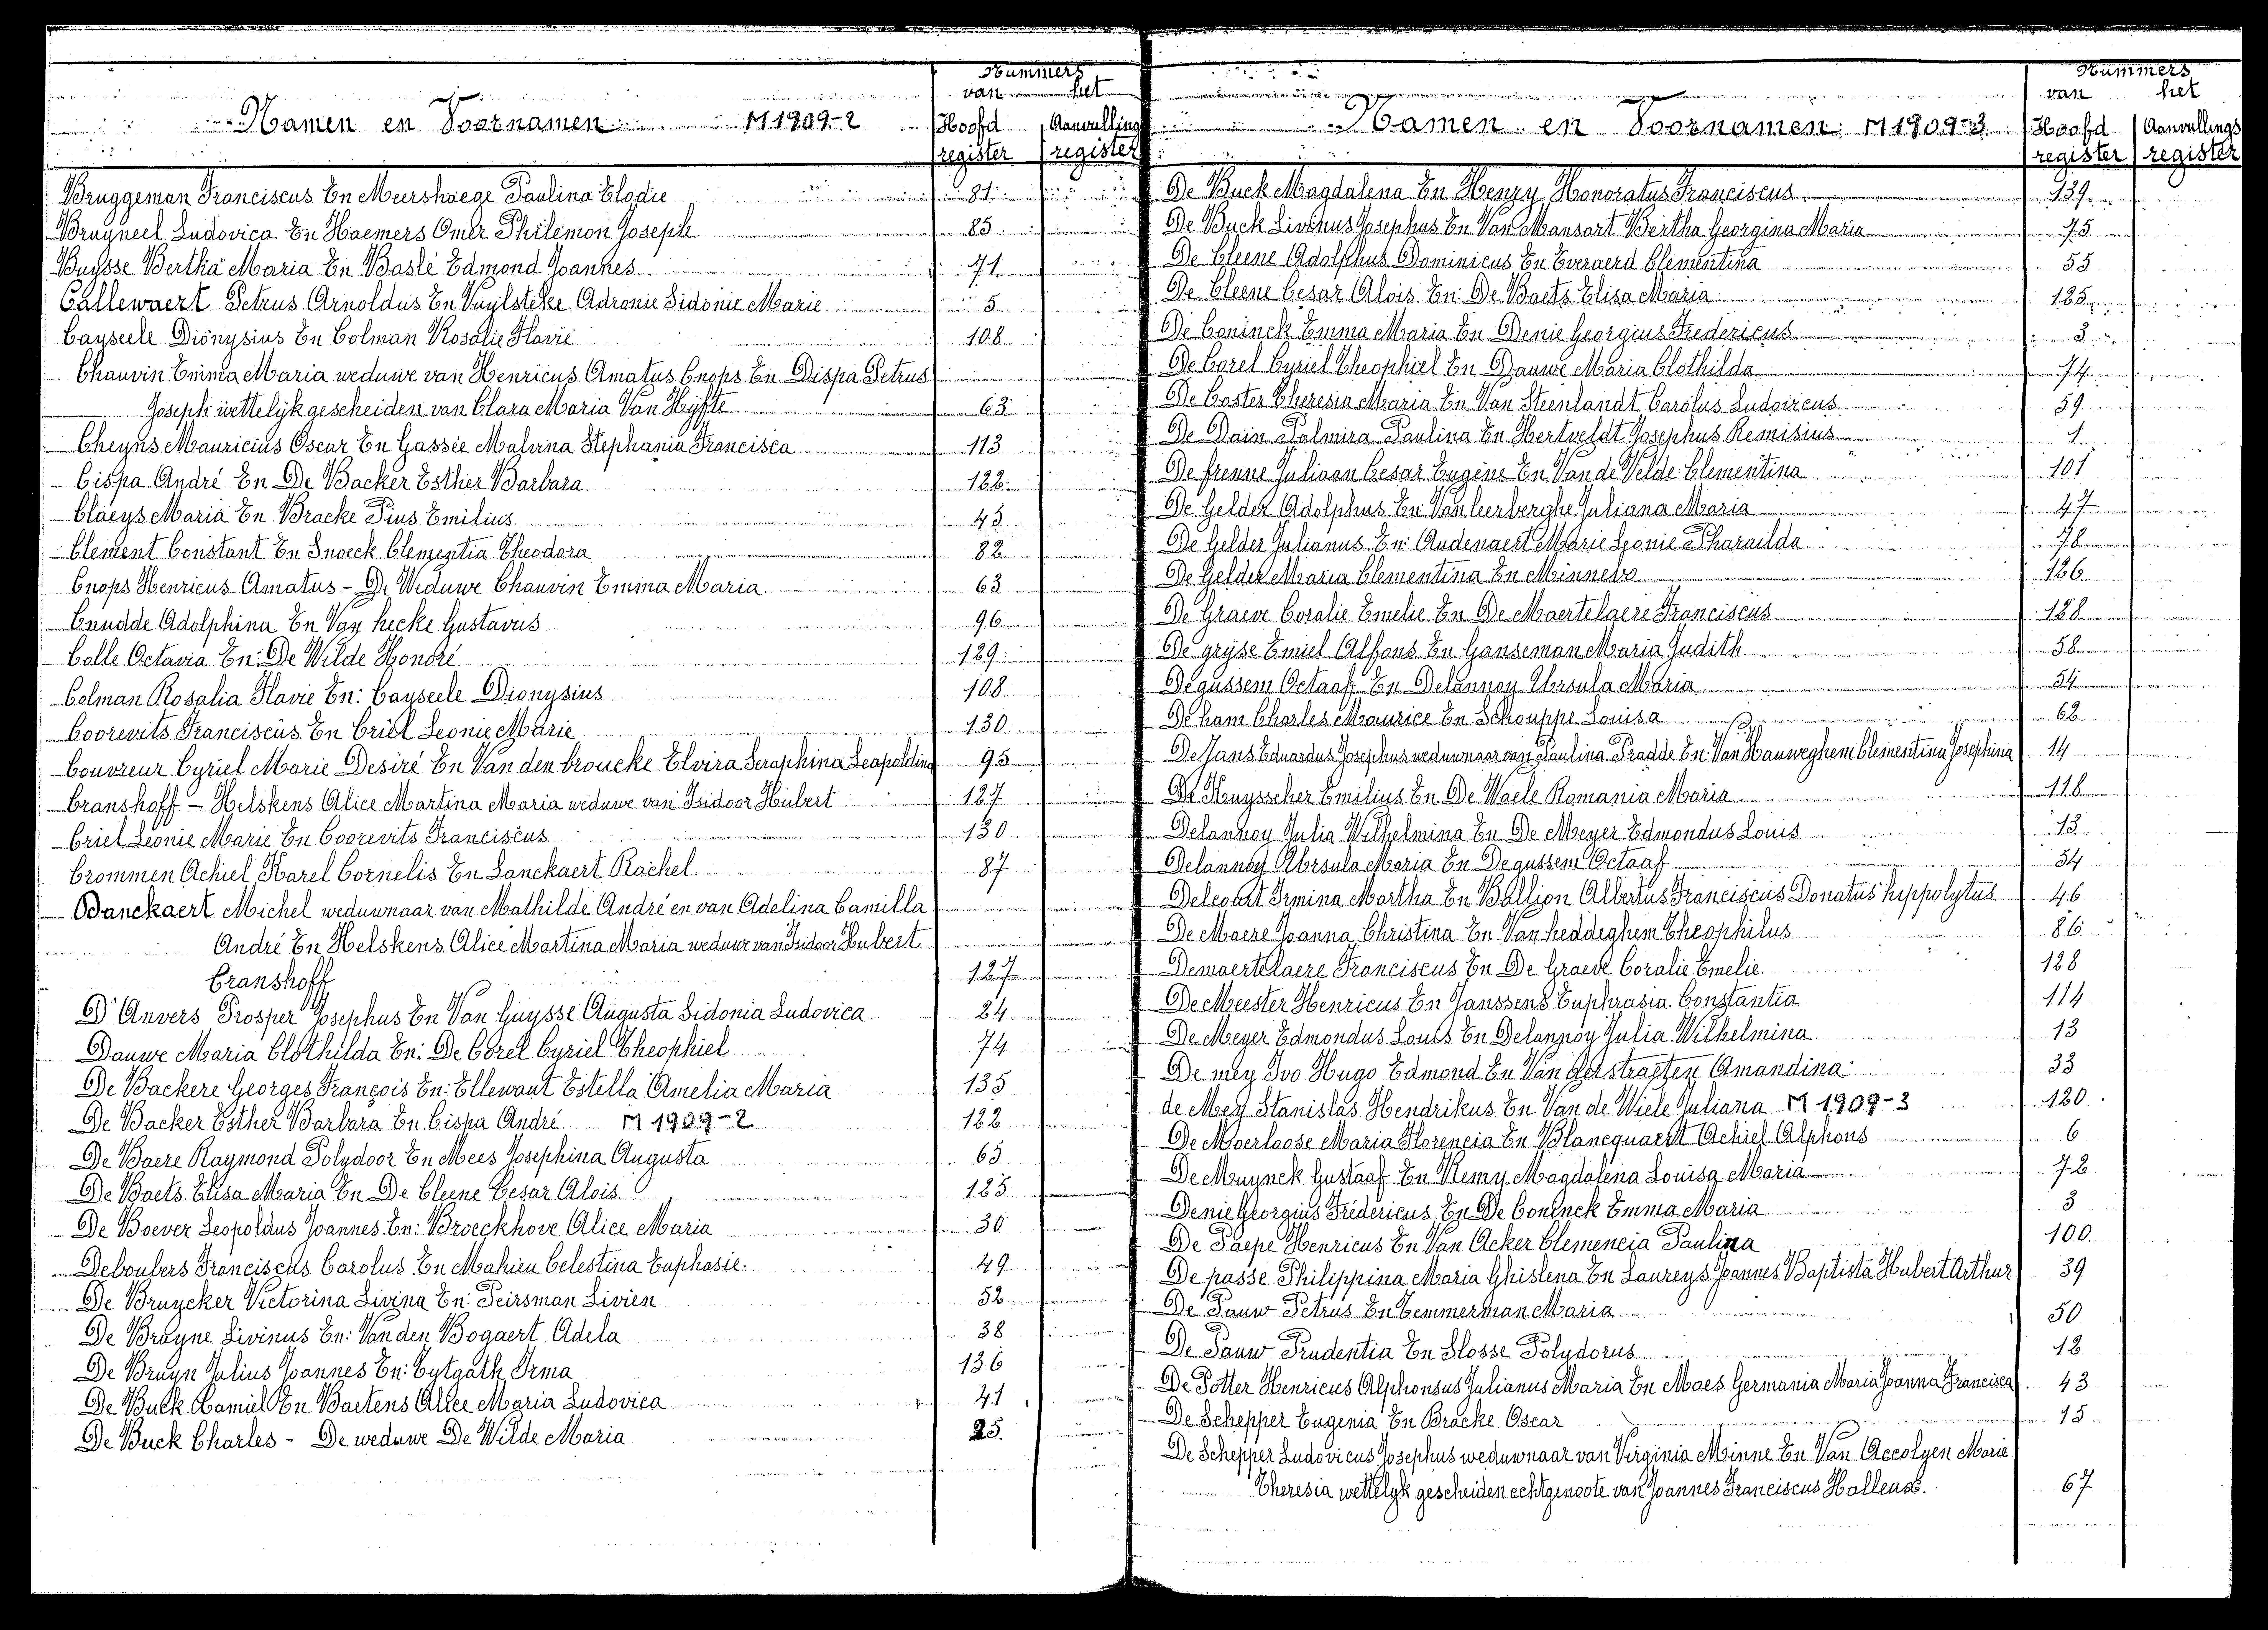 Nummers
van het
Namen en Voornamen M1909-2 Hoofd Aanvulling
register register
Bruggeman Franciscus En Meershaege Paulina Elodie 81
Bruyneel Ludovica En Haemers Omer Philémon Joseph 85
Buysse Bertha Maria En Baslé Edmond Joannes 71
Callewaert Petrus Arnoldus En Vuylsteke Adronie Sidonie Marie 5
Cayseele Dionysius En Colman Rosalie Flavie 108
Chauvin Emma Maria weduwe van Henricus Amatus Cnops En Dispa Petrus
Joseph wettelijk gescheiden van Clara Maria Van Hyfte 63
Cheyns Mauricius Oscar En Gassée Malvina Stephania Francisca 113
Cispa André En De Backer Esther Barbara 122
Claeys Maria En Bracke Pius Emilius 45
Clement Constant En Snoeck Clementia Theodora 82
Cnops Henricus Amatus - De Weduwe Chauvin Emma Maria 63
Cnudde Adolphina En Van hecke Gustavus 96
Colle Octavia En: De Wilde Honoré 129
Colman Rosalia Flavie En: Cayseele Dionysius 108
Coorevits Franciscus En Criel Leonie Marie 130
Couvreur Cyriel Marie Desiré En Van den broucke Elvira Seraphina Leopoldina 95
Cranshoff - Helskens Alice Martina Maria weduwe van Isidoor Hubert 127
Criel Leonie Marie En Coorevits Franciscus 130
Crommen Achiel Karel Cornelis En Lanckaert Rachel 87
Danckaert Michel weduwnaar van Mathilde André en van Adelina Camilla
André En Helskens Alice Martina Maria weduwe van Isidoor Hubert
Cranshoff 127
D'Anvers Prosper Josephus En Van Guysse Augusta Sidonia Ludovica 24
Dauwe Maria Clothilda En: De Corel Cyriel Theophiel 74
De Backere Georges François En: Ellewaut Estella Amelia Maria 135
De Backer Esther Barbara En Cispa André M1909-2 122
De Baere Raymond Polydoor En Mees Josephina Augusta 65
De Baets Elisa Maria En De Cleene Cesar Alois 125
De Boever Leopoldus Joannes En: Broeckhove Alice Maria 30
Deboubers Franciscus Carolus En Mahieu Celestina Euphasie 49
De Bruycker Victorina Livina En: Peirsman Livien 52
De Bruyne Livinus En: Van den Bogaert Adela 38
De Bruyn Julius Joannes En: Cytgath Irma 136
De Buck Camiel En Baetens Alice Maria Ludovica 41
De Buck Charles - De weduwe De Wilde Maria 25
Nummers
van het
Namen en Voornamen M1909-3 Hoofd Aanvullings
register register
De Buck Magdalena En Henry Honoratus Franciscus 139
De Buck Livinus Josephus En Van Mansart Bertha Georgina Maria 75
De Cleene Adolphus Dominicus En Everaerd Clementina 55
De Cleene Cesar Alois En: De Baets Elisa Maria 125
De Coninck Emma Maria En Denie Georgius Fredericus 3
De Corel Cyriel Theophiel En Dauwe Maria Clothilda 74
De Coster Theresia Maria En Van Steenlandt Carolus Ludovicus 59
De Dain Palmira Paulina En Hertveldt Josephus Remisius 1
De frenne Juliaan Cesar Eugène En Van de Velde Clementina 101
De Gelder Adolphus En: Van leerberghe Juliana Maria 47
De Gelder Julianus En: Audenaert Marie Leonie Pharaïlda 78
De Gelder Maria Clementina En Minnebo 126
De Graeve Coralie Emelie En De Maertelaere Franciscus 128
De gryse Emiel Alfons En Ganseman Maria Judith 58
Degussem Octaaf En Delannoy Ursula Maria 54
De ham Charles Maurice En Schouppe Louisa 62
De Jans Eduardus Josephus weduwnaar van Paulina Pradde En: Van Hauweghem Clementina Josephina 14
De Kuysscher Emilius En De Waele Romania Maria 118
Delannoy Julia Wilhelmina En De Meyer Edmondus Louis 13
Delannoy Ursula Maria En Degussem Octaaf 54
Delcourt Irmina Martha En Ballion Albertus Franciscus Donatus hyppolytus 46
De Maere Joanna Christina En Van heddeghem Theophilus 86
Demaertelaere Franciscus En De Graeve Coralie Emelie 128
De Meester Henricus En Janssens Euphrasia Constantia 114
De Meyer Edmondus Louis En Delannoy Julia Wilhelmina 13
De mey Ivo Hugo Edmond En Van Aerstraeten Amandina 33
de Mey Stanislas Hendrikus En Van de Wiele Juliana M1909-3 120
De Moerloose Maria Florencia En Blancquaert Achiel Alphons 6
De Muynck Gustaaf En Remy Magdalena Louisa Maria 72
Denie Georgius Frédericus En De Coninck Emma Maria 3
De Paepe Henricus En Van Acker Clemencia Paulina 100
De passe Philippina Maria Ghislena En Laureys Joannes Baptista Hubert Arthur 39
De Pauw Petrus En Temmerman Maria 50
De Pauw Prudentia En Slosse Polydorus 12
De Potter Henricus Alphonsus Julianus Maria En Maes Germania Maria Joanna Francisca 43
De Schepper Eugenia En Bracke Oscar 15
De Schepper Ludovicus Josephus weduwnaar van Virginia Minne En Van Accolyen Marie
Theresia wettelyk gescheiden echtgenoote van Joannes Franciscus Halleux 67